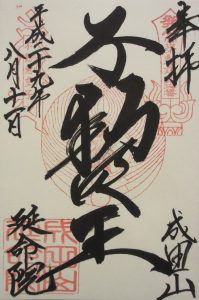 奉拝
成田山
不動明王
平成二十九年
八月十一日
延命院